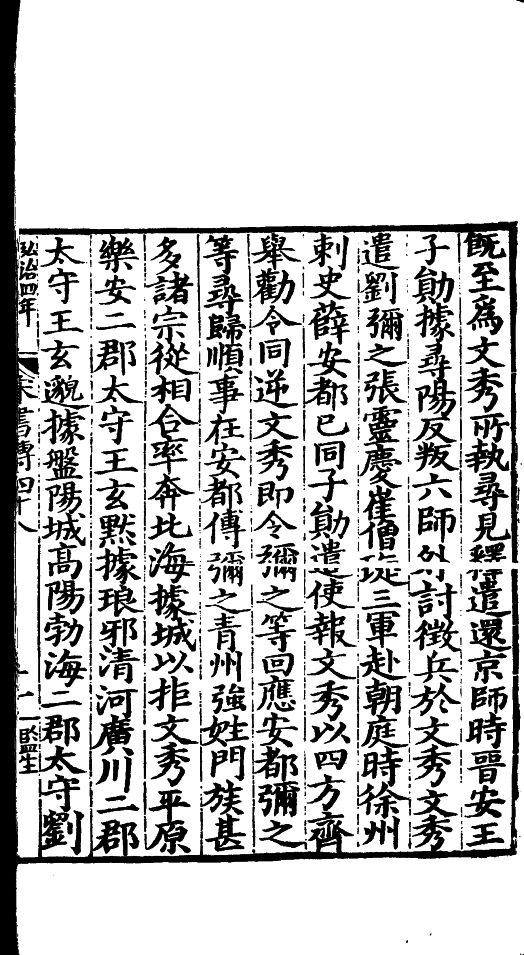 旣至爲文秀所執尋見釋遣還京師時晉安王
子勛據尋陽反叛六師外討徵兵於文秀文秀
遣劉彌之張靈慶崔僧琁三軍赴朝庭時徐州
刺史薛安都已同子勛遣使報文秀以四方齊
舉勸令同逆文秀即令彌之等回應安都彌之
等尋歸順事在安都傳彌之青州強姓門族甚
多諸宗從相合率奔北海據城以拒文秀平原
樂安二郡太守王玄默據琅邪清河廣川二郡
太守王玄邈據盤陽城高陽勃海二郡太守劉
弘治四年 宋書傳四十八 十一 監生